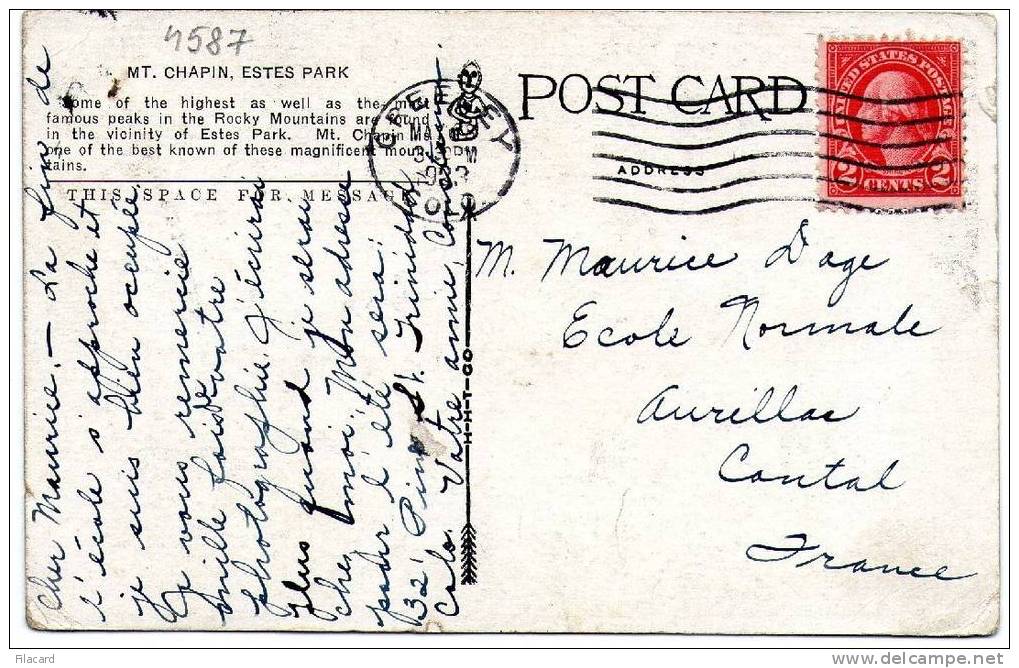 4587
MT. CHAPIN, ESTES PARK
Some of the highest as well as the most
famous peaks in the Rocky Mountains are found
in the vicinity of Estes Park. Mt. Chapin is
one of the best known of these magnificent moun-
tains.
THIS SPACE FOR MESSAGE
Cher Maurice. — La fin de
l'école s'approche et
je suis bien occupée.
Je vous remercie
mille fois de votre
photographie. J'écrirai
plus quand je serai
chez moi. Mon adresse
pour l'été sera:
321 Pine St. Trinidad,
Colo. Votre amie,
POST CARD
ADDRESS
GREELEY
COLO.
UNITED STATES POSTAGE
2 CENTS 2
M. Maurice Dage
Ecole Normale
Aurillac
Cantal
France
H-H-T-CO
Filacard
delcampe.net